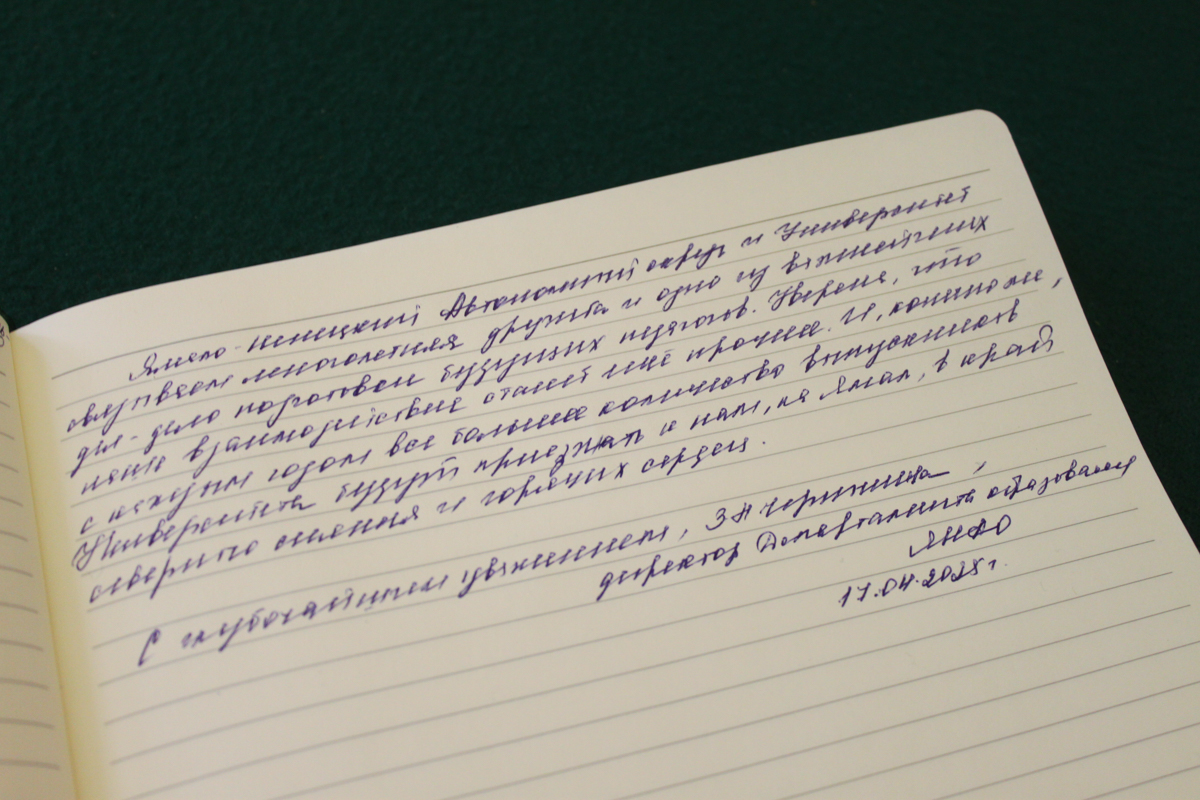 Ямало-Ненецкий Автономный округ и Университет
связывает многолетняя дружба и одно из важнейших
дел - дело подготовки будущих педагогов. Уверена, что
наше взаимодействие станет ещё прочнее. И, конечно же,
с каждым годом всё большее количество выпускников
Университета будут приезжать к нам, на Ямал, в край
северного сияния и горячих сердец.
С глубочайшим уважением,
директор Департамента образования
ЯНАО
17.04.2025 г.